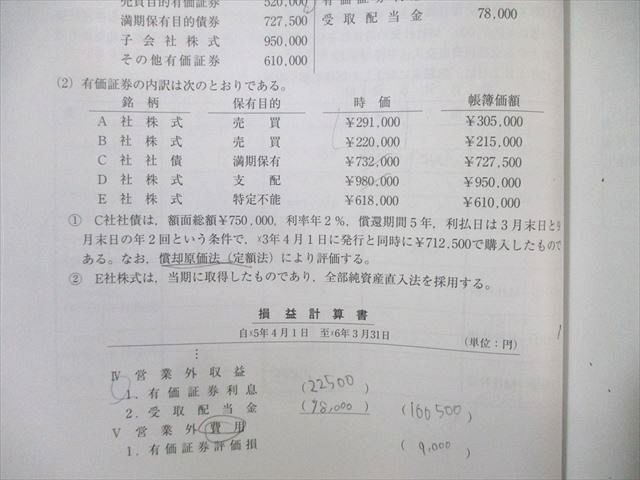 売買目的有価証券 520,000
満期保有目的債券 727,500 受取配当金 78,000
子会社株式 950,000
その他有価証券 610,000
(2) 有価証券の内訳は次のとおりである。
銘柄 保有目的 時価 帳簿価額
A社株式 売買 ¥291,000 ¥305,000
B社株式 売買 ¥220,000 ¥215,000
C社社債 満期保有 ¥732,000 ¥727,500
D社株式 支配 ¥980,000 ¥950,000
E社株式 特定不能 ¥618,000 ¥610,000
① C社社債は，額面総額¥750,000，利率年2％，償還期間5年，利払日は3月末日と9
月末日の年2回という条件で，x3年4月1日に発行と同時に¥712,500で購入したもので
ある。なお，償却原価法（定額法）により評価する。
② E社株式は，当期に取得したものであり，全部純資産直入法を採用する。
損益計算書
自x5年4月1日 至x6年3月31日 (単位：円)
⋮
Ⅳ 営業外収益
1．有価証券利息 (22500)
2．受取配当金 (78,000) (100500)
Ⅴ 営業外費用
1．有価証券評価損 (9,000)